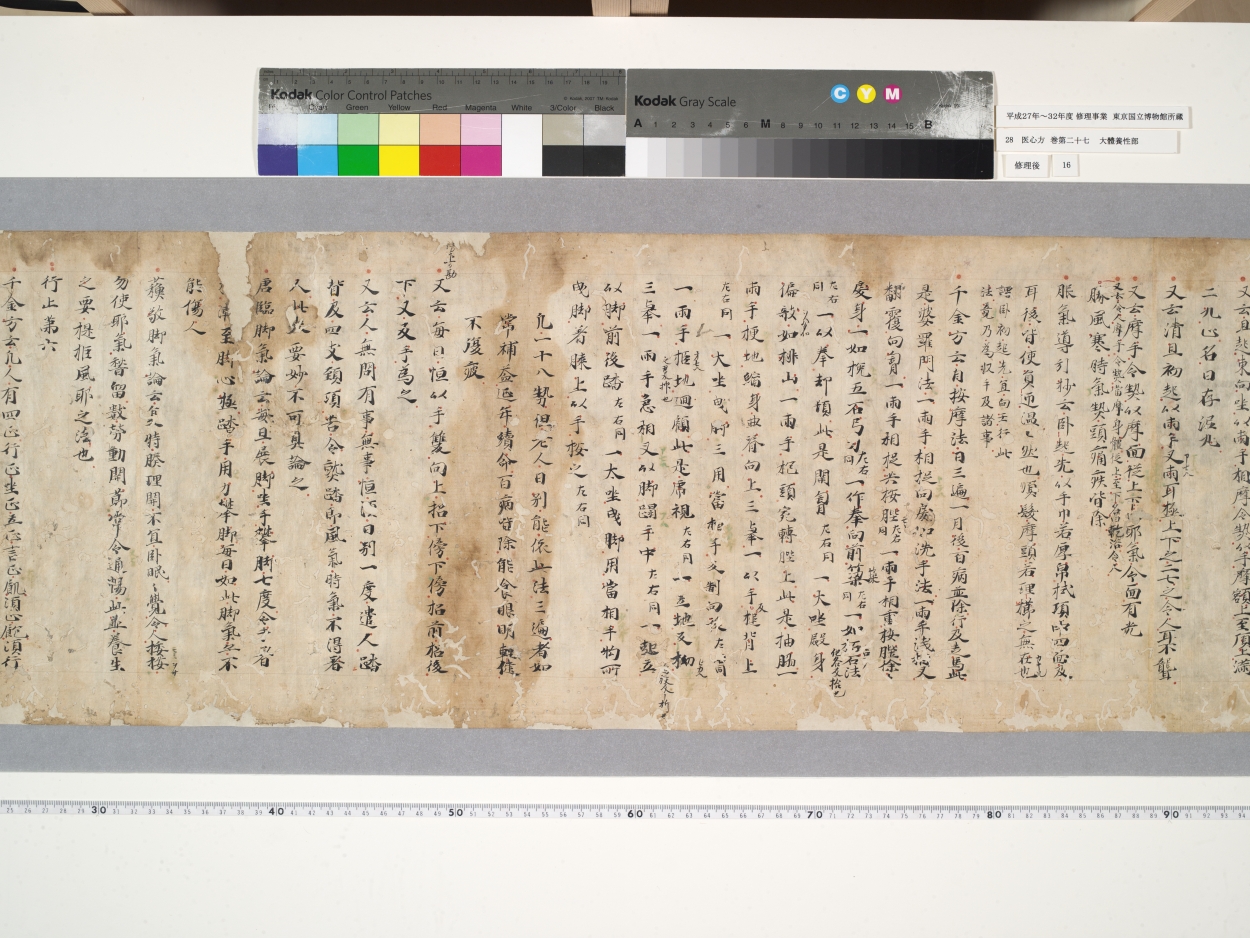 Kodak Color Control Patches
© Kodak, 2007 TM: Kodak
Cyan Green Yellow Red Magenta White 3/Color Black
Kodak Gray Scale
C Y M
A 1 2 3 4 5 6 M 8 9 10 11 12 13 14 15 B
平成27年～32年度 修理事業 東京国立博物館所蔵
28 医心方 巻第二十七 大體養性部
修理後 16
二九心名曰存泥丸
又云清旦初起以兩手叉兩耳極上下之二七之令人耳不聾
又云摩手令熱以摩面從上下止邪氣令面有光
豚風寒時氣熱頭痛疾皆除
服氣導引抄云卧起先以手巾若厚帛拭項中四面及
耳後皆使員通温温然也順髮摩頭若理櫛之無在也
千金方云自按摩法日三遍一月後百病並除行及走馬此
是婆羅門法一兩手相捉向戾如洗手法一兩手淺叉
翻覆向胷一兩手相捉共按脛左右同一兩手相重按髀徐徐
戾身一如挽五石弓力左右同一作拳向前築左右同一如拓石法
左右同一以拳却頓此是開胷左右同一大坐殿身
偏欹如排山一兩手抱頭宛轉脛上此是抽脇一
兩手梗地縮身曲脊向上三舉一以手槌背上
左右同一大坐曳脚三用當相手反制向後左右同
一兩手拒地廻顧此是虎視左右同一立地反拗
三舉一兩手急相叉以脚蹋手中左右同一起立
以脚前後踏左右同一大坐曳脚用當相手拘所
曳脚者膝上以手按之左右同
凡二十八勢但老人日別能依此法三遍者如
常補益延年續命百病皆除能食眼明輕健
不復疲
又云每日恒以手雙向上招下傍下傍招前招後
下又反手為之
又云人無問有事無事恒須日別一度遣人踏
背及四支頸項若令熟踏即風氣時氣不得著
人此大要妙不可具論之
唐臨脚氣論云每旦展脚坐手攀脚七度令手著
至脚心極踏手用力攀脚每日如此脚氣無不
能傷人
蘇敬脚氣論云夏時腠理開不宜卧眠眠覺令人按挼
勿使邪氣稽留數勞動關節常令通暢此並養生
之要提拒風邪之法也
行止第六
千金方云凡人有四正行正坐正立正言正飢須止飽須行
30 40 50 60 70 80 90